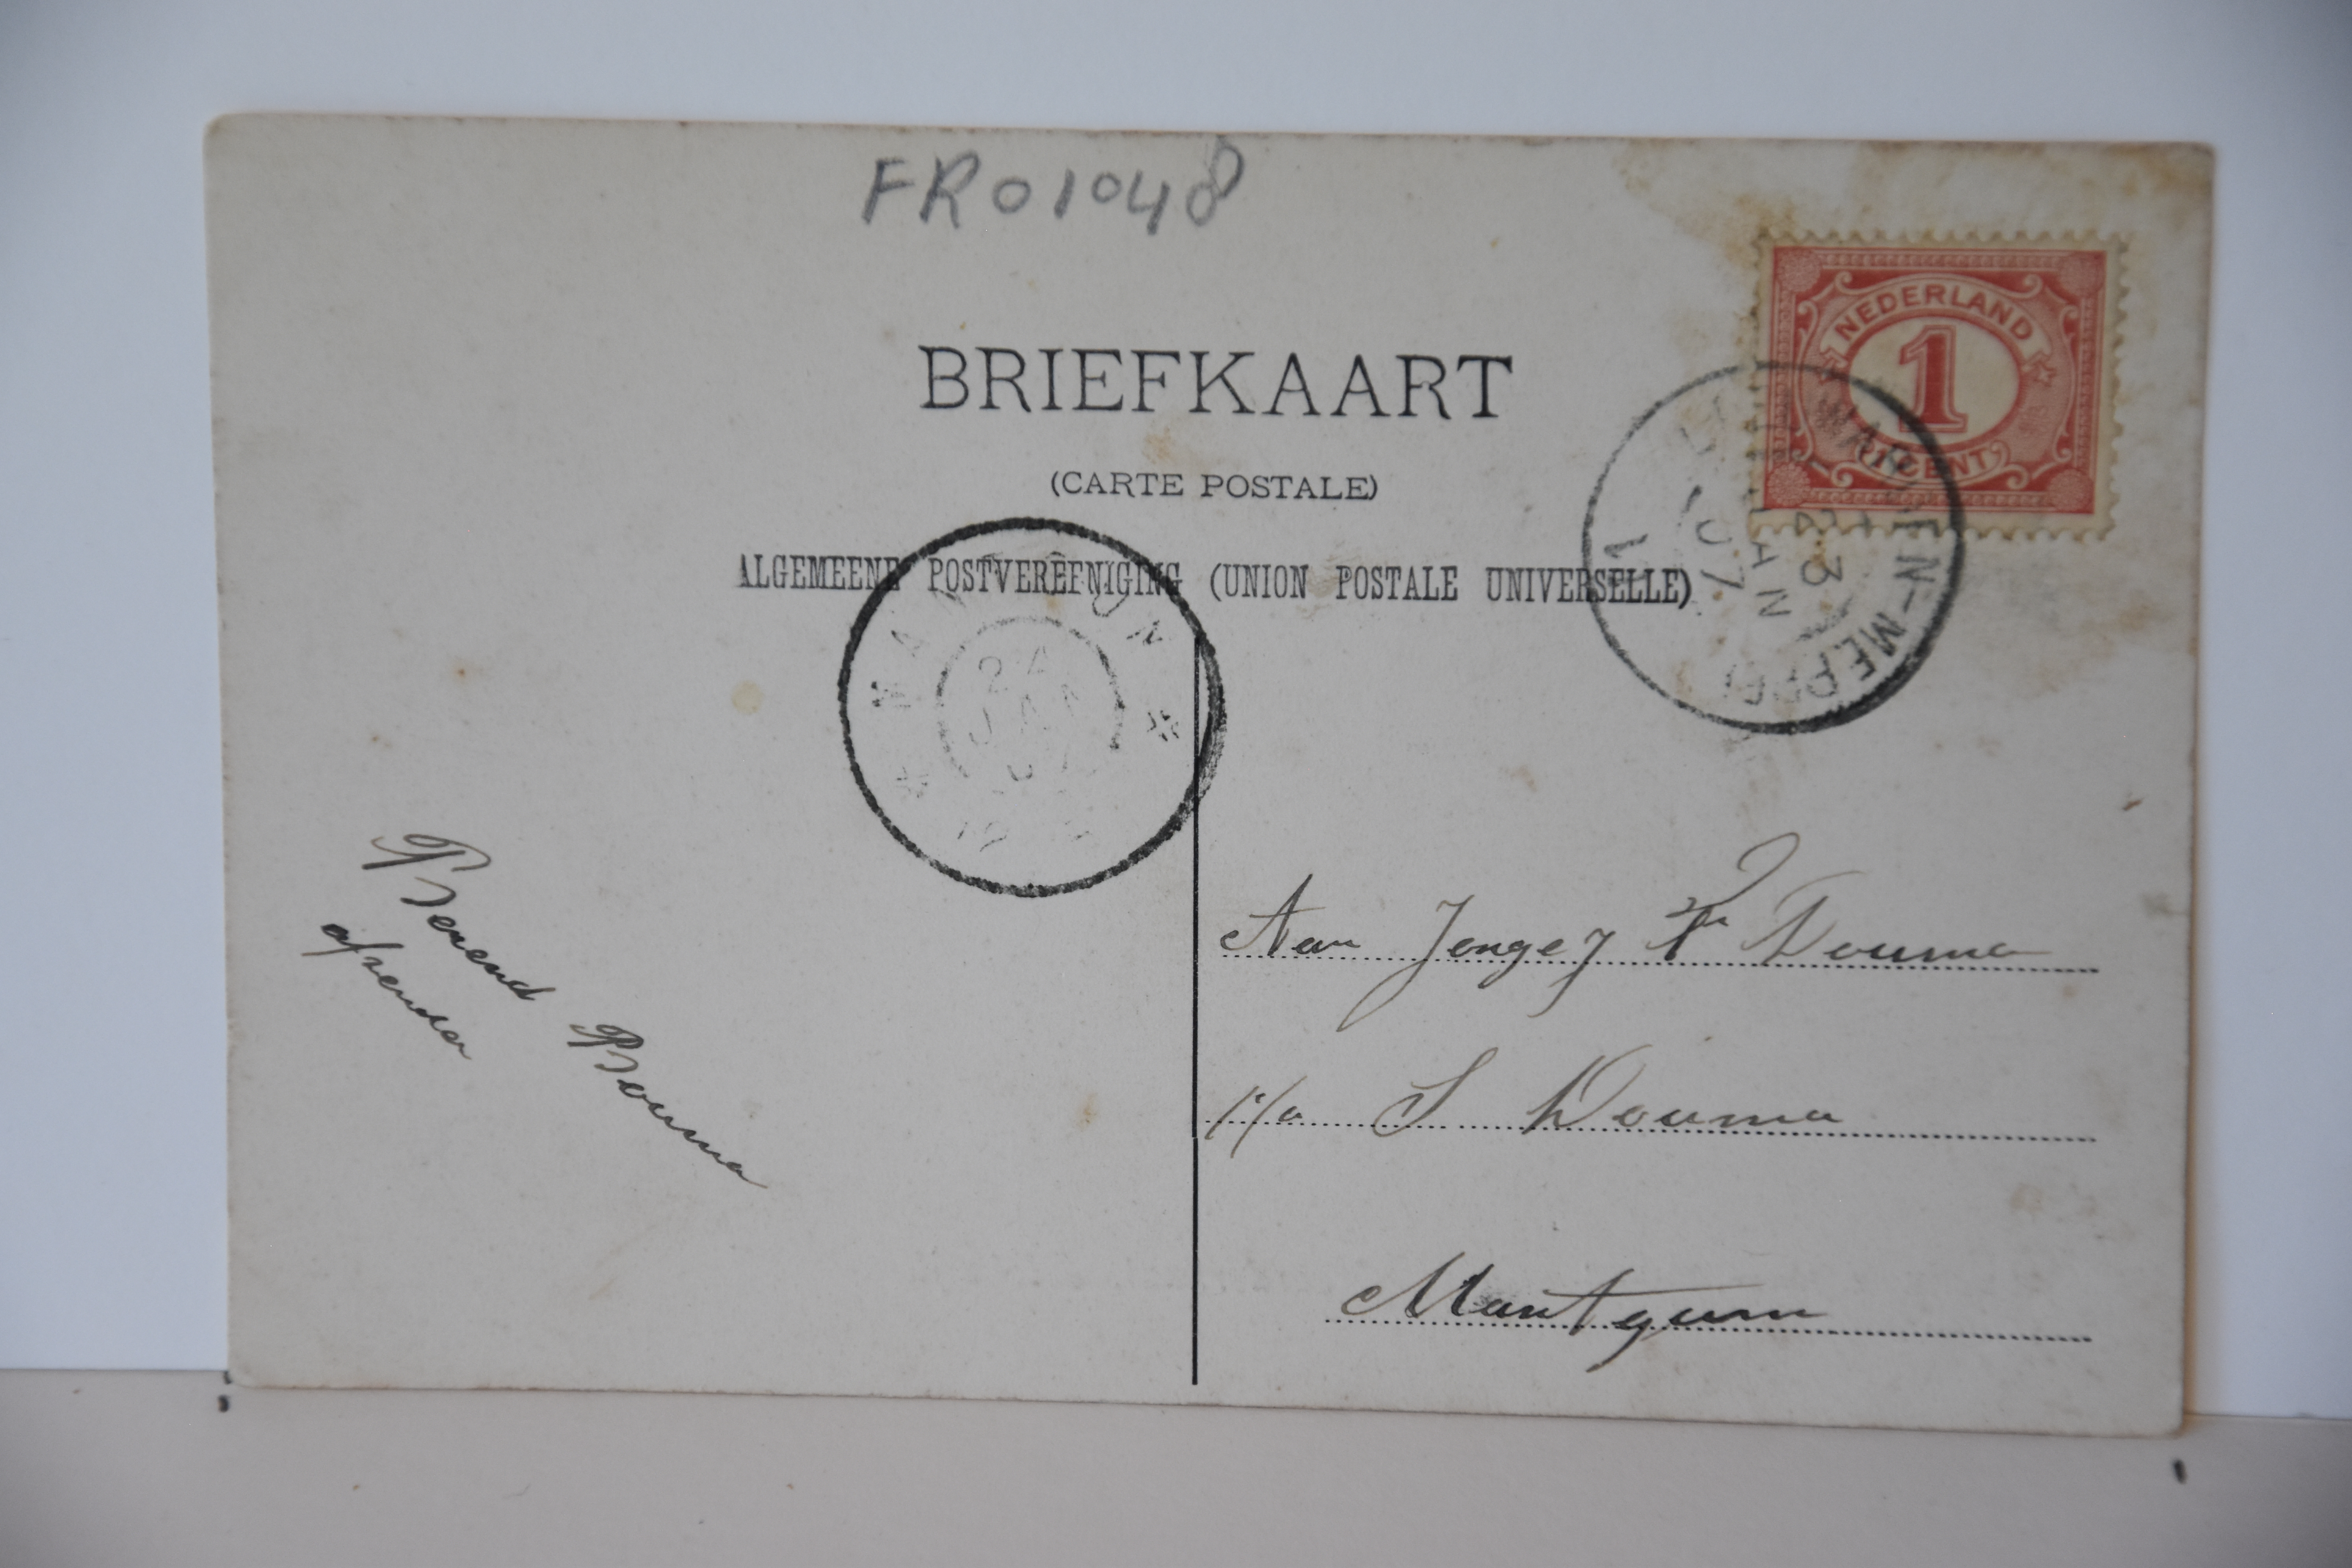 FR01048
BRIEFKAART
(CARTE POSTALE)
ALGEMEENE POSTVEREENIGING (UNION POSTALE UNIVERSELLE)
NEDERLAND
1
CENT
-MEPPEL
23
JAN
07
24
JAN
Aan Jonge J Douma
p/a S Douma
Mantgum
Berend Bouma
afzender